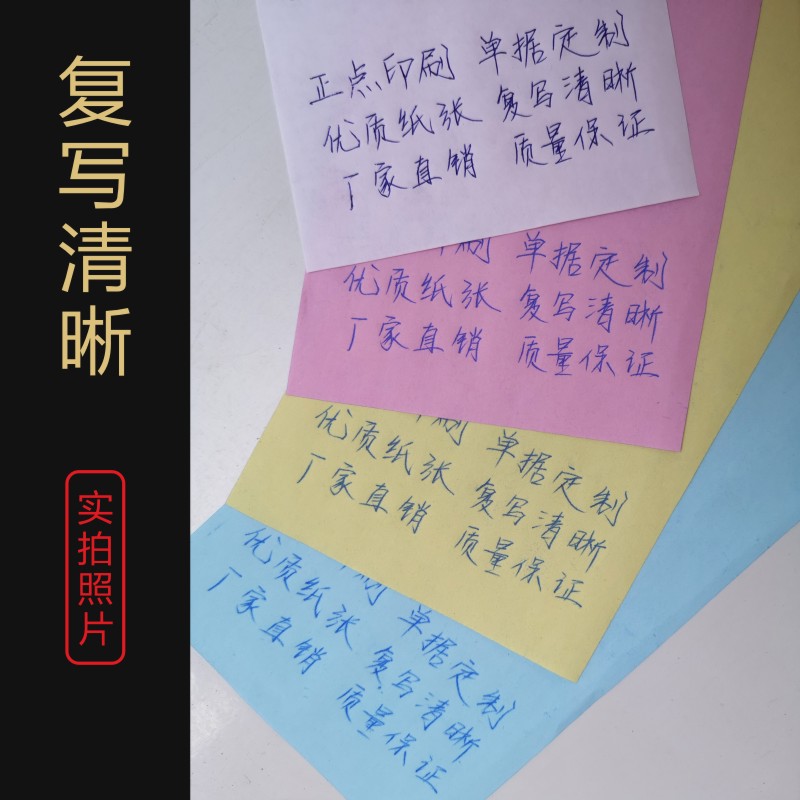 复写清晰
实拍照片
正点印刷 单据定制
优质纸张 复写清晰
厂家直销 质量保证
刷 单据定制
优质纸张 复写清晰
厂家直销 质量保证
刷 单据定制
优质纸张 复写清晰
厂家直销 质量保证
单据定制
优质纸张 复写清晰
厂家直销 质量保证